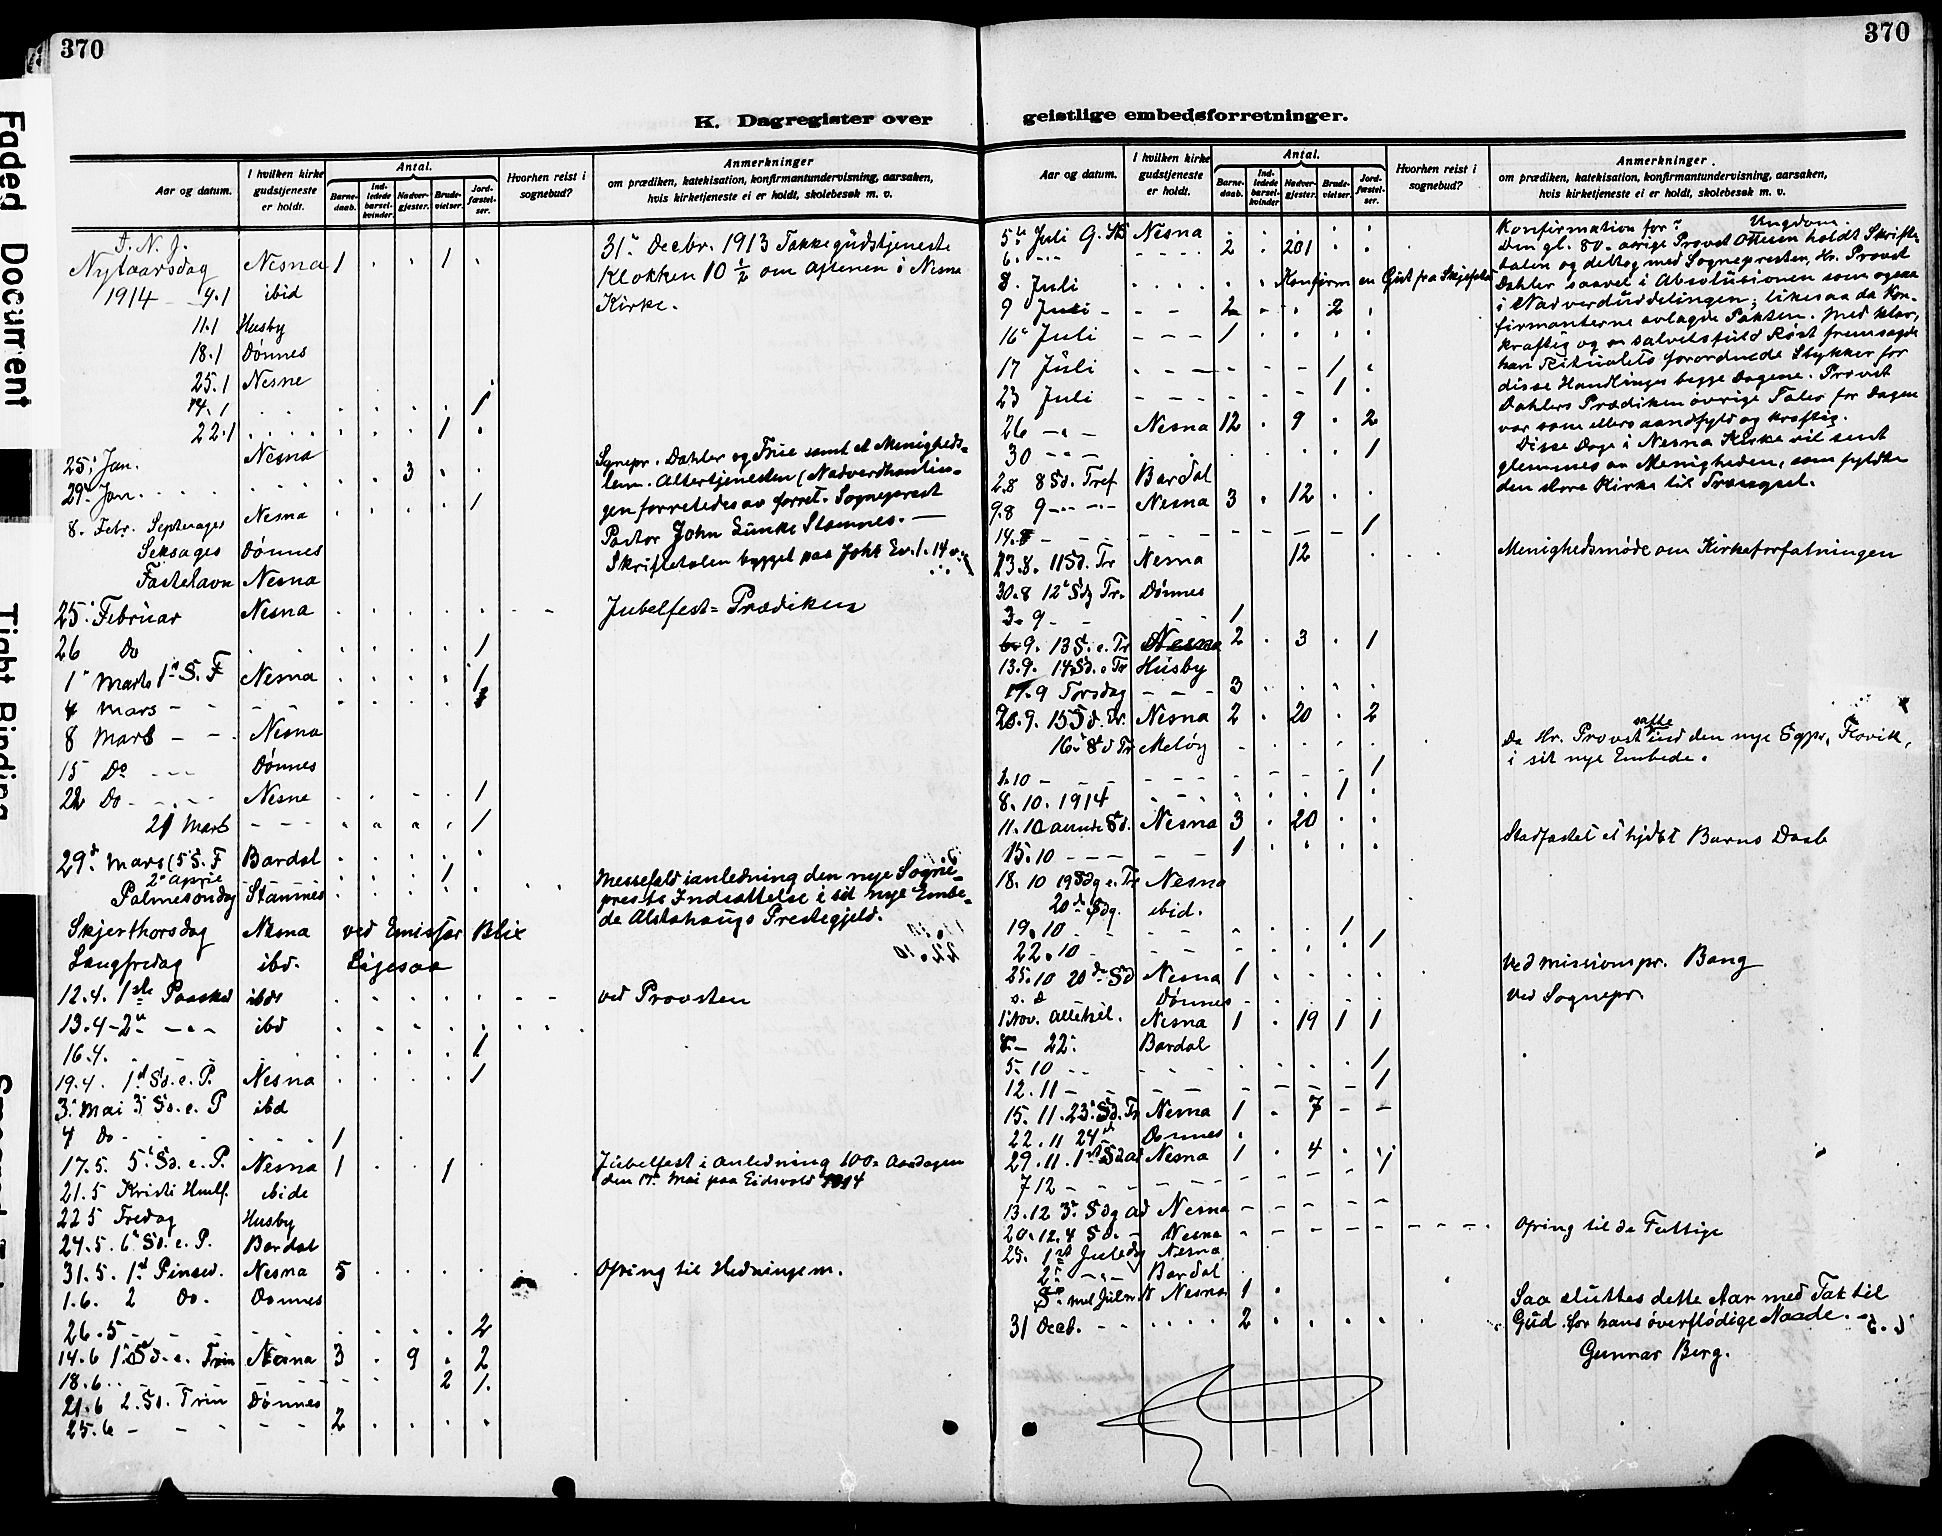 370
370
Faded Document
Tight Binding
K. Dagregister over
geistlige embedsforretninger.
Aar og datum.
I hvilken kirke gudstjeneste er holdt.
Antal.
Barne-daab.
Ind-ledede barsel-kvinder
Nadver-gjester.
Brude-vielser.
Jord-fæstel-ser.
Hvorhen reist i sognebud?
Anmerkninger
om prædiken, katekisation, konfirmantundervisning, aarsaken,
hvis kirketjeneste ei er holdt, skolebesøk m. v.
I. N. J.
Nytaarsdag Nesna 1 . . 1 .
1914 - 4.1 ibid
11.1 Husby
18.1 Dønnes
25.1 Nesne
14.1 . . . . . . 1
22.1 . . . . . 1 .
25. Jan. Nesna
29. Jan. . . . . . 3 . .
8. Febr. Septuages Nesna . . . . 1
Seksages Dønnes
Fastelavn Nesna
25. Februar Nesna . . . . . - -
26 Do . . . . 1
1 Marts 1. S. F Nesna . . . . 1
4 Mars - - - -
8 Mars - - Nesna
15 Do - - - Dønnes
22 Do - - - Nesne . . . . 1
21 Mars - - - . . . . 1
29. Mars (5 S. F Bardal . . . . .
2. April 1
Palmesøndag Stamnes . . . . . . .
Skjærthorsdag Nesna ved Emissær Blix
Langfredag ibd. Ligesaa
12.4. 1ste Paasked ibd . . . . . - -
13.4 - 2. - - ibd . . . . . . . .
16.4. . . . . . . . 1
19.4. 1. Sd. e. P. Nesna . . . . 1
3. Mai 3. Sd. e. P ibd
4 Do - - - - . . . 1 .
17.5. 5. Sd. e. P. Nesna 1 . . 1 .
21.5 Kristi Himlf. ibide
22 5 Fredag Husby
24.5. 6. Sd. e. P. Bardal
31.5. 1. Pinsed. Nesna 5 . . . . .
1.6. 2 Do. Dønnes
26.5 - - - - - . . . . 2
14.6 1. Sd. e. Trin Nesna 3 . 9 . 2
18.6 . . - - - - - - . . 2 1.
21.6 2. Sd. Trin Dønnes
25.6 - - - - - 2 . . . .
31. Decbr. 1913 Takkegudstjeneste
Klokken 10 ½ om Aftenen i Nesna
Kirke.
Sgnepr. Dahler og Frue samt et Menigheds-
lem. Altertjenesten (Nadverdhandlin-
gen forrettedes av forret. Sogneprest
Pastor John Stamnes. —
Skriftetalen bygget paa Joh. Ev. 1. 14 v.
Jubelfest = Prædiken
Messefald i anledning den nye Sogne-
prests Indsættelse i sit nye Embe-
de Alstahaugs Prestegjeld.
ved Provsten
Jubelfest i anledning 100-Aarsdagen
den 17. Mai paa Eidsvold 1914
Ofring til Hedningem.
Aar og datum.
I hvilken kirke gudstjeneste er holdt.
Antal.
Barne-daab.
Ind-ledede barsel-kvinder
Nadver-gjester.
Brude-vielser.
Jord-fæstel-ser.
Hvorhen reist i sognebud?
Anmerkninger.
om prædiken, katekisation, konfirmantundervisning, aarsaken,
hvis kirketjeneste ei er holdt, skolebesøk m. v.
5. Juli Nesna . . . . .
6. - - - - - - 2 . 201 . . .
8. Juli . . . . . . Konfirm en Gut fra Skjefeld
9 Juli - - - - 2 - . 2 .
16. Juli - - - 1 . . . .
17 Juli . - - - - - 1 .
23 Juli - - - - - - 1 .
26 - - - Nesna 12 . 9 . 2
30 - - - . . . . 1
2.8 8 Sd. Tref Bardal
9.8 9 - - - - Nesna 3 . 12 . .
14.8 - - - - - - - - - 1
23.8. 11 Sd. Tr Nesna 12 . . .
30.8 12. Sdg Tr. Dønnes
3. 9 - - - - 1
6. 9. 13 S. e. Tr Nesna 2 . 3 . 1
13.9. 14. Sd. e Tr Husby
17.9 Torsdag - - - 3 . . . .
20.9. 15 Sd. Tr. Nesna 2 . 20 . 2
16. Sd Tr Meløy - . . . .
1.10 - - - - - - - - - 1
8. 10. 1914 . - - - . . . 1 .
11.10 Sd. Nesna 3 . 20 . .
15.10 - - - - - 1 . . . .
18. 10 19 Sdg e. Tr Nesna
20. Sdg. ibid.
19.10 - - - - - . . 1
22.10 - - - - . . . 1
25.10 20. Sd Nesna 1 . . . .
Dønnes
1 Nov. Allehel. Nesna 1 . 19 1 1
8 - 22. Bardal
5.10 . . - - - . . . . 1
12.11 - - - - - - - - - 1
15.11.23. Sd. Tr Nesna 1 . 7 - -
22.11 24. Dønnes .
29.11. 1. Sd ad Nesna 1 . 4 . .
7 12 - - - - - - - - 1
13.12 3. Sdg ad Nesna - - - -
20.12. 4 Sd. - Nesna - - - - - - - - .
25. 1st Juledg Nesna
2. - - - Bardal
Nesna 1 .
31 Decb. - - . . . . 2 . . . .
Konfirmation for Ungdom.
Den gl. 80-aarige Provst Ottesen holdt Skrifte-
talen og deltog med Sognepresten, Hr. Provst
Dahler saavel i Absolutionen som ogsaa
i Nadverduddelingen; likesaa da Kon-
firmanterne avlagde Pakten. Med klar,
kraftig og en salvelsfuld Røst fremsagde
han Ritualets forordnede Stykker for
disse Handlinger begge Dagene. Provst
Dahlers Prædiken øvrige Taler for Dagen
var som ellers aandfyld og kraftig.
Disse Dage i Nesna Kirke vil sent
glemmes av Menigheden, som fyldte
den store Kirke til Trængsel.
Menighedsmøde om Kirkeforfatningen
Da Hr. Provst satte ind den nye Sgpr.
i sit nye Embede.
Stadfæstet et hjdbt Barns Daab
Ved missionspr. Bang
Ved Sognepr.
Ofring til de Fattige
Saa sluttes dette Aar med Tak til
Gud for hans overflødige Naade. -
Gunnar Berg.